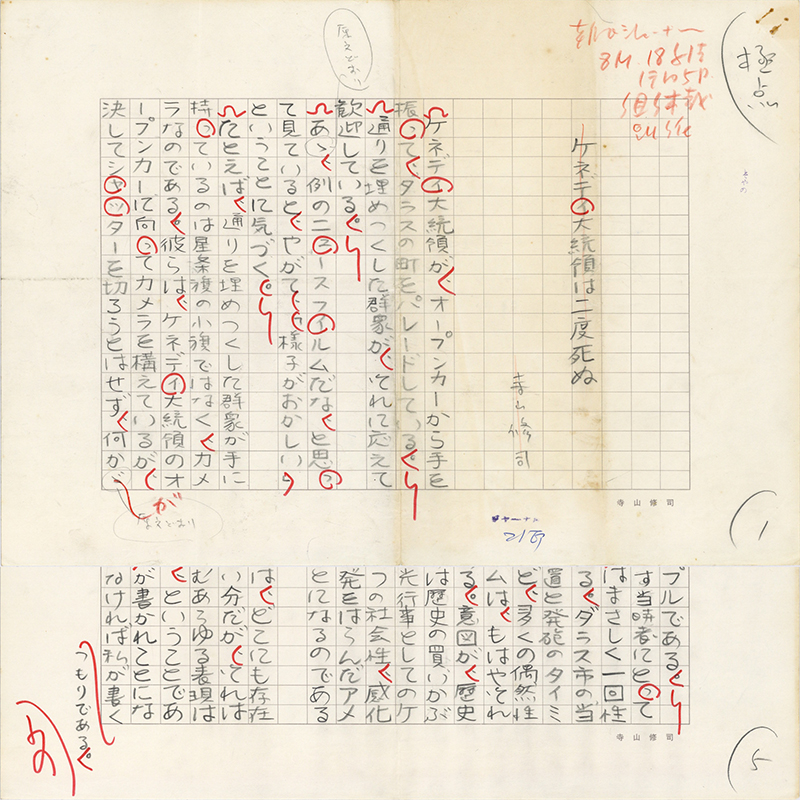 極点
朝日ジャーナル
8M 18字詰
ケネディ大統領は二度死ぬ
寺山修司
ケネディ大統領が、オープンカーから手を
振って、ダラスの町をパレードしている。
通りを埋めつくした群衆が、それに応えて
歓迎している。
あゝ、例のニュースフィルムだな、と思っ
て見ていると、やがて、様子がおかしい、
ということに気づく。
たとえば、通りを埋めつくした群衆が手に
持っているのは星条旗の小旗ではなく、カメ
ラなのである。彼らは、ケネディ大統領のオ
ープンカーに向ってカメラを構えているが、
決してシャッターを切ろうとはせず、何かが
が
原文どおり
原文どおり
寺山修司
ジャーナル
1
プルである。
す当時者にとって
はまさしく一回性
る。ダラス市の当
置と発砲のタイミ
ど、多くの偶然性
ムは、もはやそれ
る。意図が、歴史
は歴史の買いかぶ
先行事としてのケ
つの社会性、感化
発をはらんだアメ
とになるのである
は、どこにも存在
い分だが、それは
むあらゆる表現は
、ということであ
が書かれことにな
なければ私が書く
つもりである。
寺山修司
5